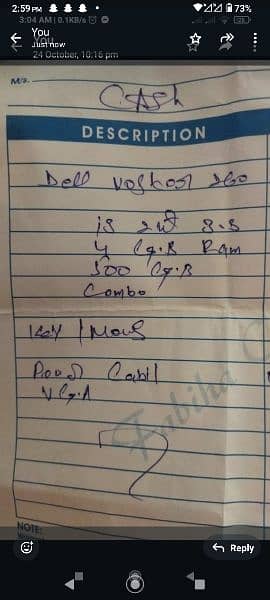 2:59 PM 73%
3:04 AM | 0.1KB/s
You
Just now
24 October, 10:16 pm
M/s.
CASH
DESCRIPTION
Dell 260
i3 2nd
4 G.B Ram
500 G.B
Combo
Key / Mous
Power Cabil
V G.A
Fabiha C
NOTE:
Reply